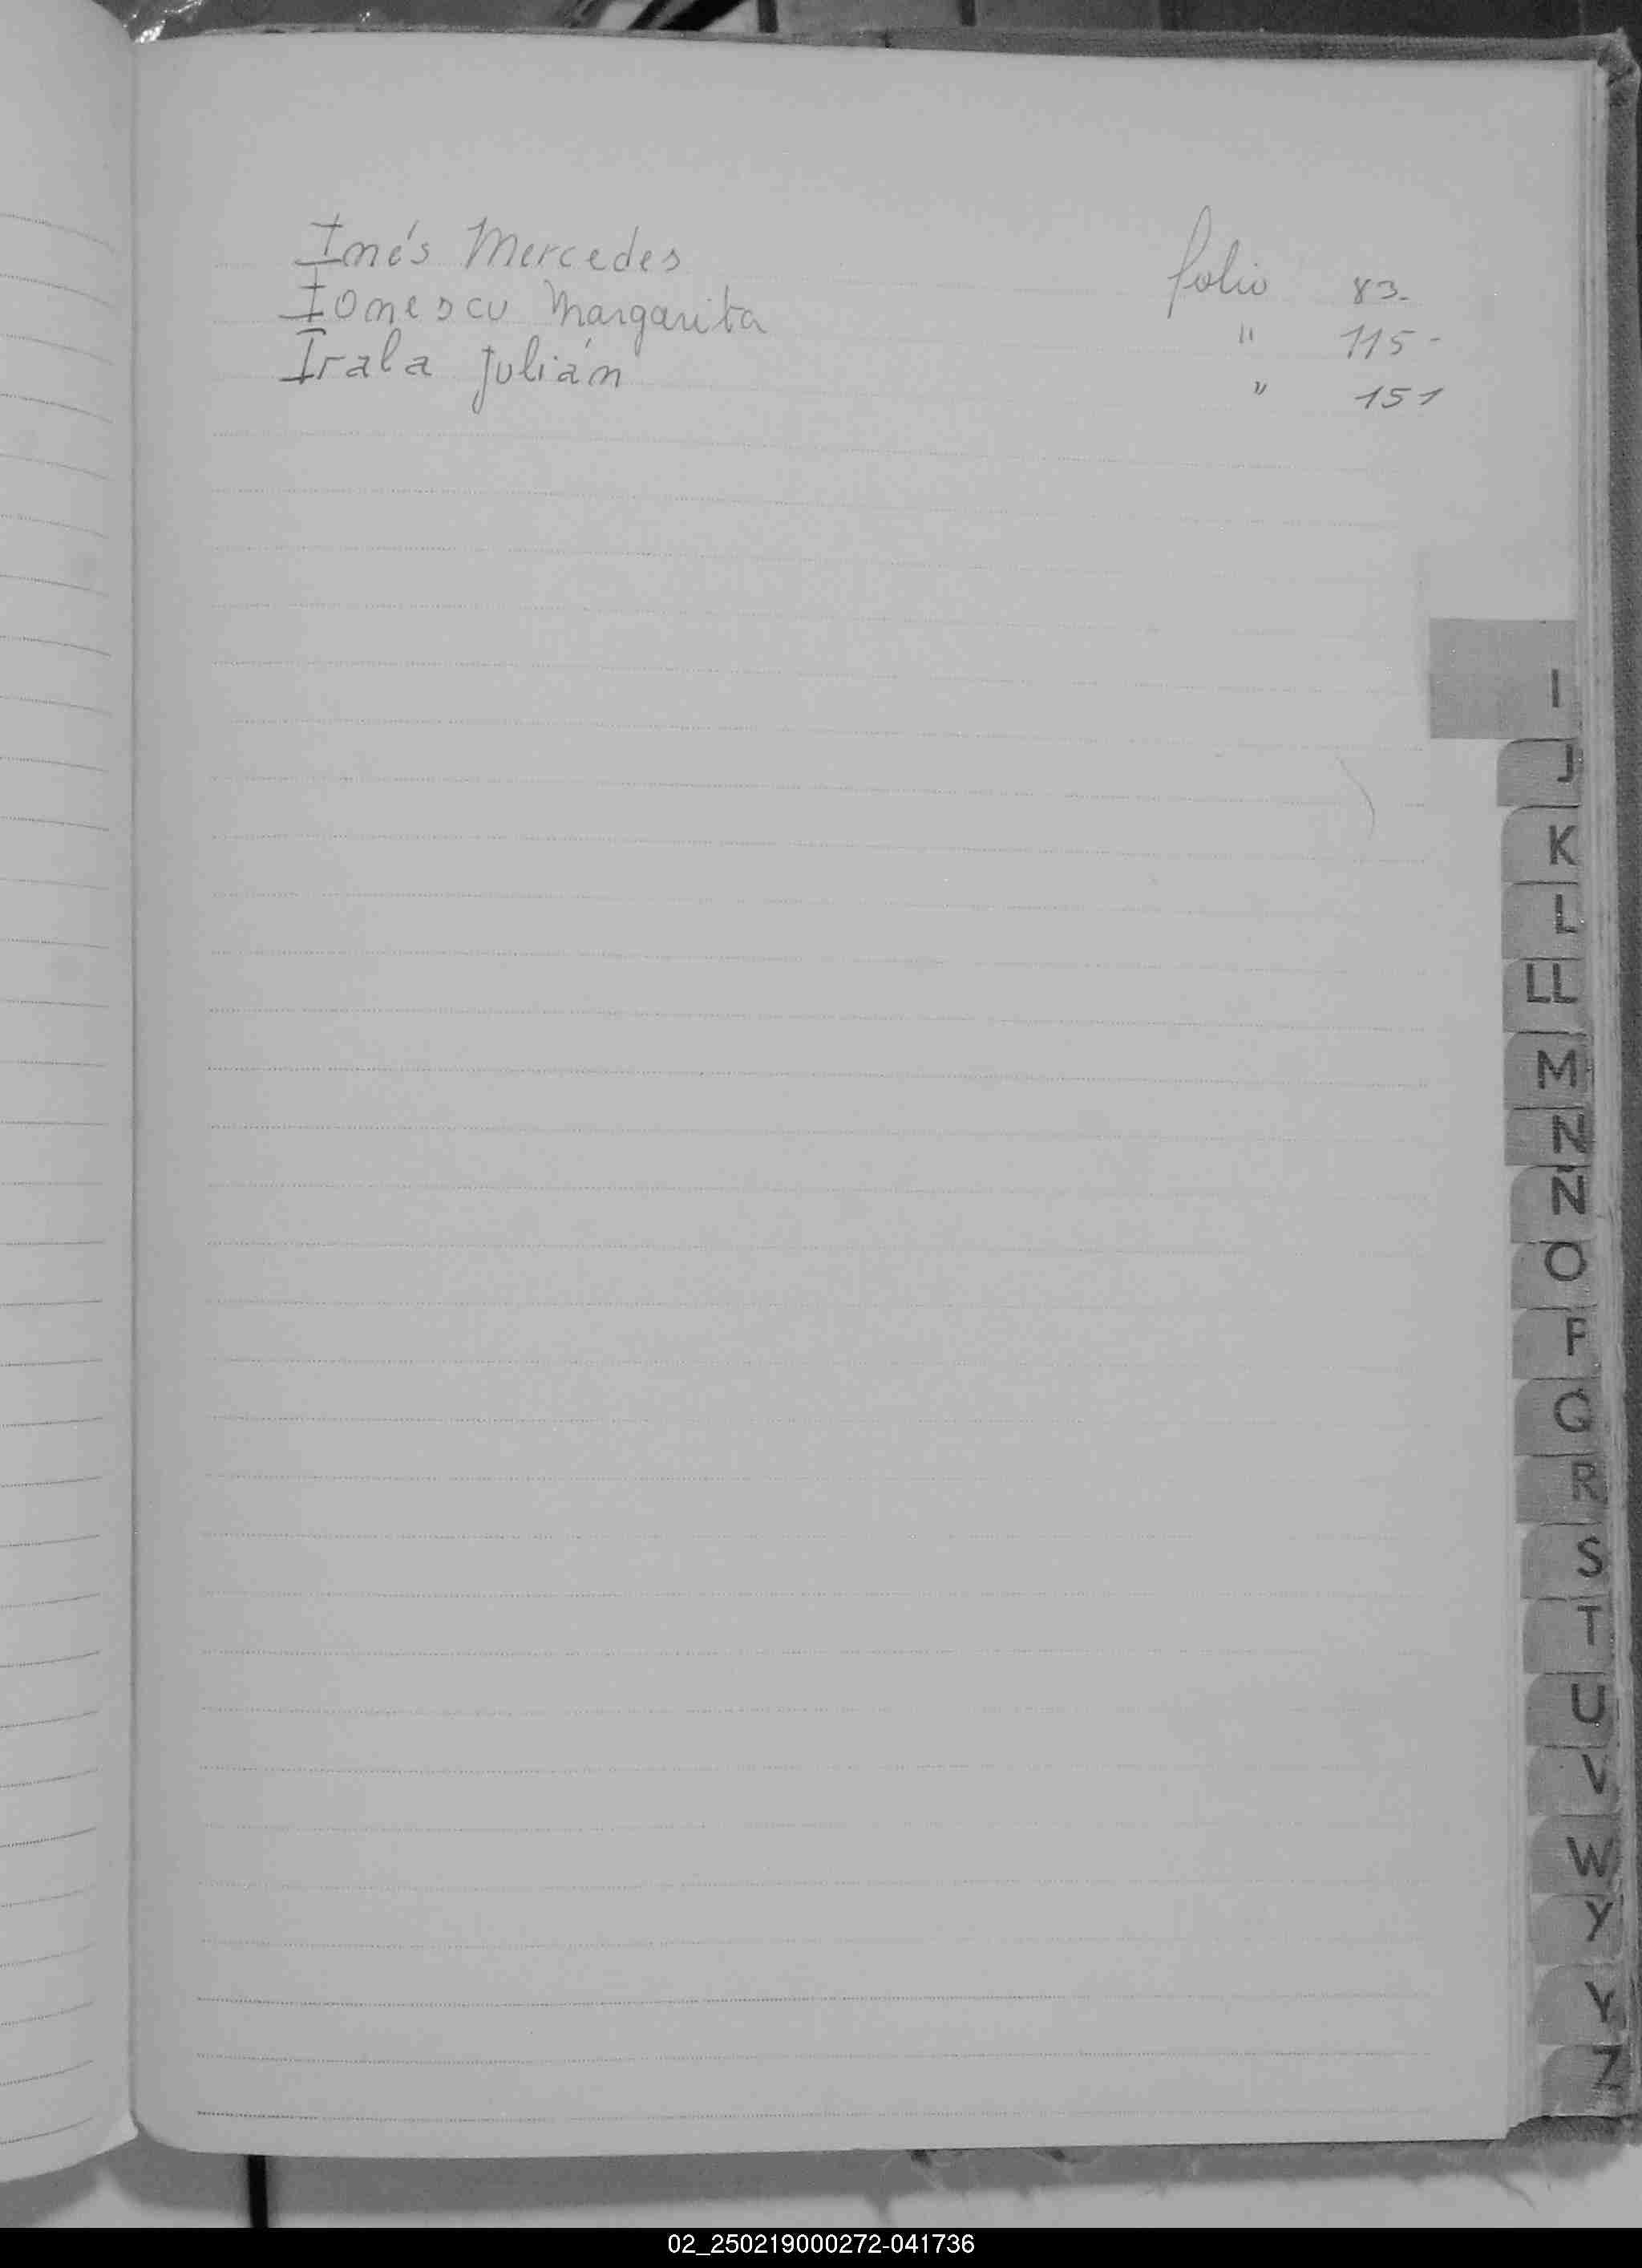 Inés Mercedes folio 83-
Ionescu Margarita " 115-
Irala Julián " 151
I
J
K
L
LL
M
N
Ñ
O
P
Q
R
S
T
U
V
W
Y
Y
Z
02_250219000272-041736